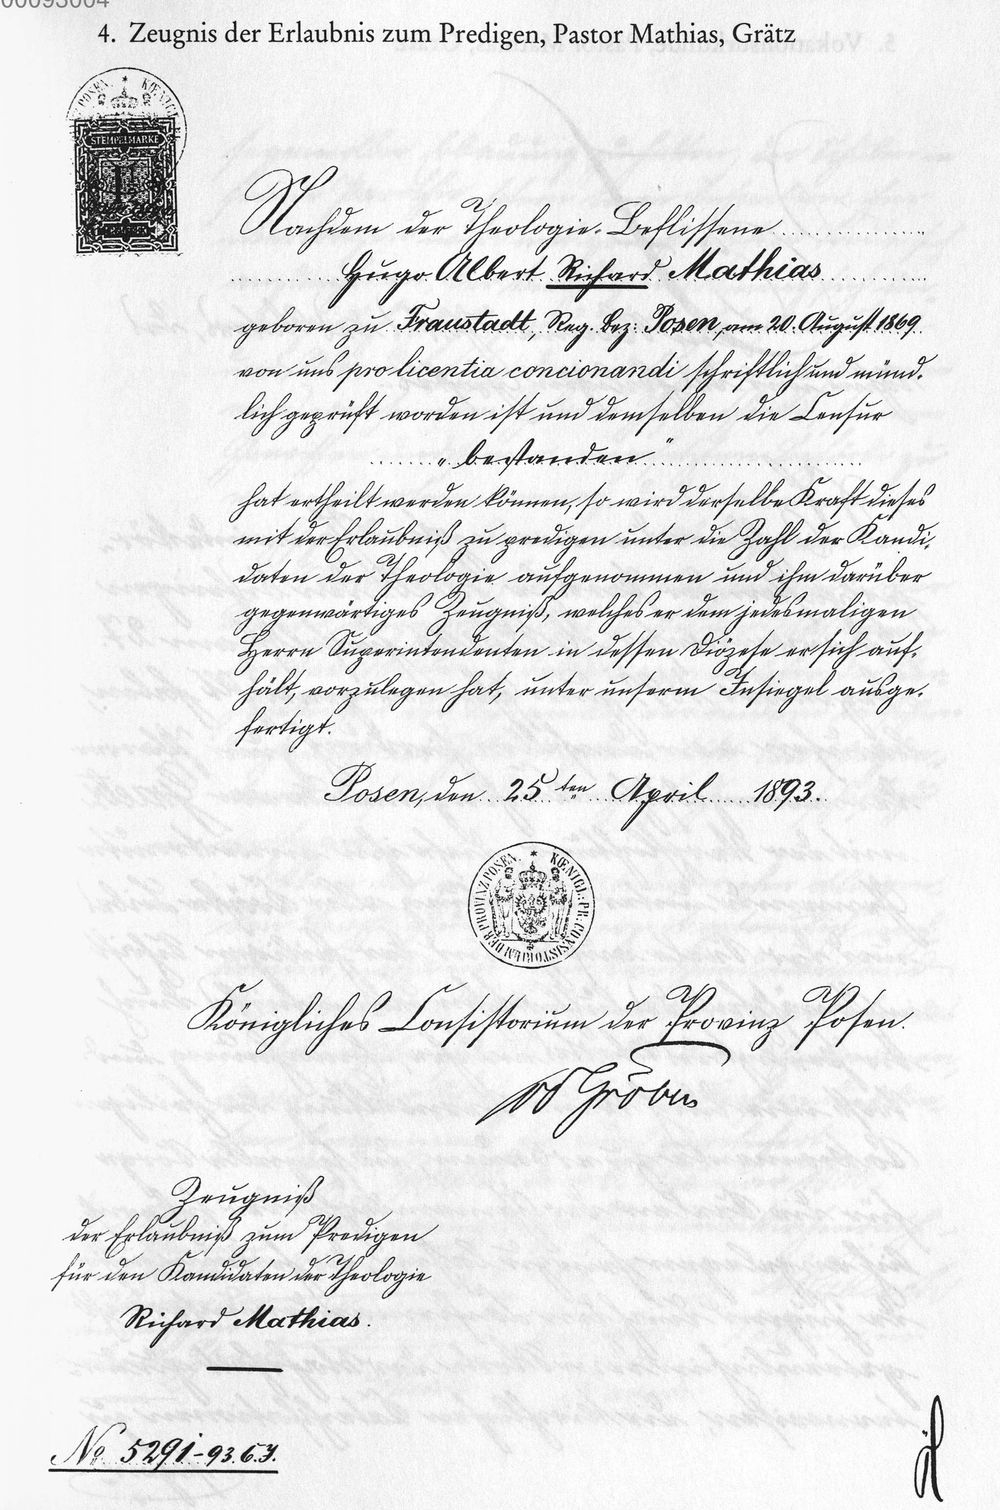 00093004
4. Zeugnis der Erlaubnis zum Predigen, Pastor Mathias, Grätz
PROVINZ POSEN. * KŒNIGL. PR.
STEMPELMARKE
Nachdem der Theologie-Beflissene
Hugo Albert Richard Mathias
geboren zu Fraustadt, Reg. bez: Posen, am 20. August 1869
von uns pro licentia concionandi schriftlich und münd-
lich geprüft worden ist und demselben die Censur
„bestanden"
hat ertheilt werden können, so wird derselbe Kraft dieses
mit der Erlaubniß zu predigen unter die Zahl der Kandi-
daten der Theologie aufgenommen und ihm darüber
gegenwärtiges Zeugniß, welches er dem jedesmaligen
Herrn Superintendenten in dessen Diözese er sich auf-
hält, vorzulegen hat, unter unserm Insiegel ausge-
fertigt.
Posen, den 25ten April 1893.
KŒNIGL. PR. CONSISTORIUM DER PROVINZ POSEN. *
Königliches Consistorium der Provinz Posen.
Gröben
Zeugniß
der Erlaubniß zum Predigen
für den Kandidaten der Theologie
Richard Mathias.
No. 5291-93. 6. J.